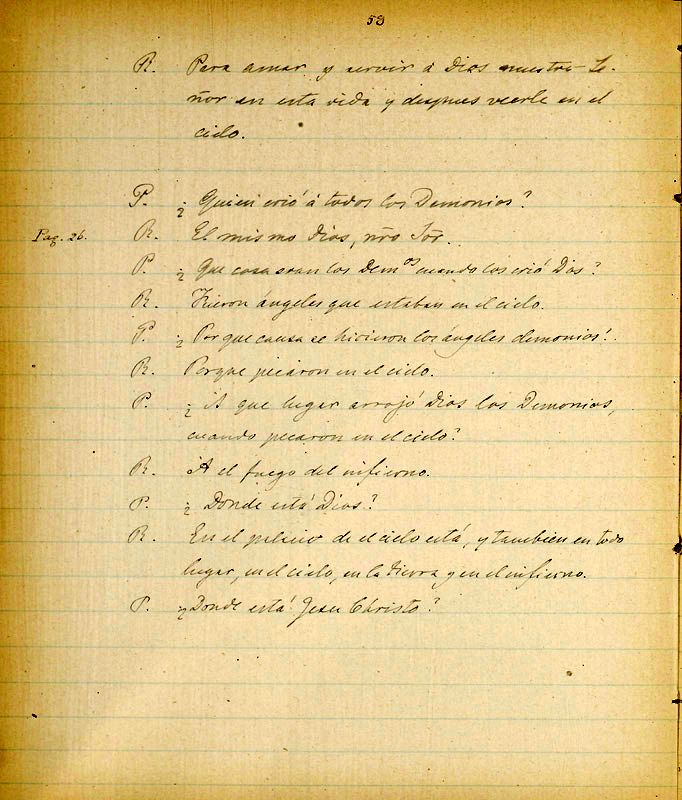 53
R. Para amar y servir á Dios nuestro Se-
ñor en esta vida y despues veerle en el
cielo.
P. ¿ Quien crió á todos los Demonios?
Pag. 26. R. El mismo Dios, nrō Sōr.
P. ¿ Que cosa eran los Dem.os cuando los crió Dios?
R. Fueron ángeles que estaban en el cielo.
P. ¿ Por que causa se hicieron los ángeles demonios?
R. Porque pecaron en el cielo.
P. ¿ A que lugar arrojó Dios los Demonios,
cuando pecaron en el cielo?
R. A el fuego del infierno.
P. ¿ Donde está Dios?
R. En el palacio de el cielo está, y tambien en todo
lugar, en el cielo, en la tierra y en el infierno.
P. ¿ Donde está Jesu Christo?